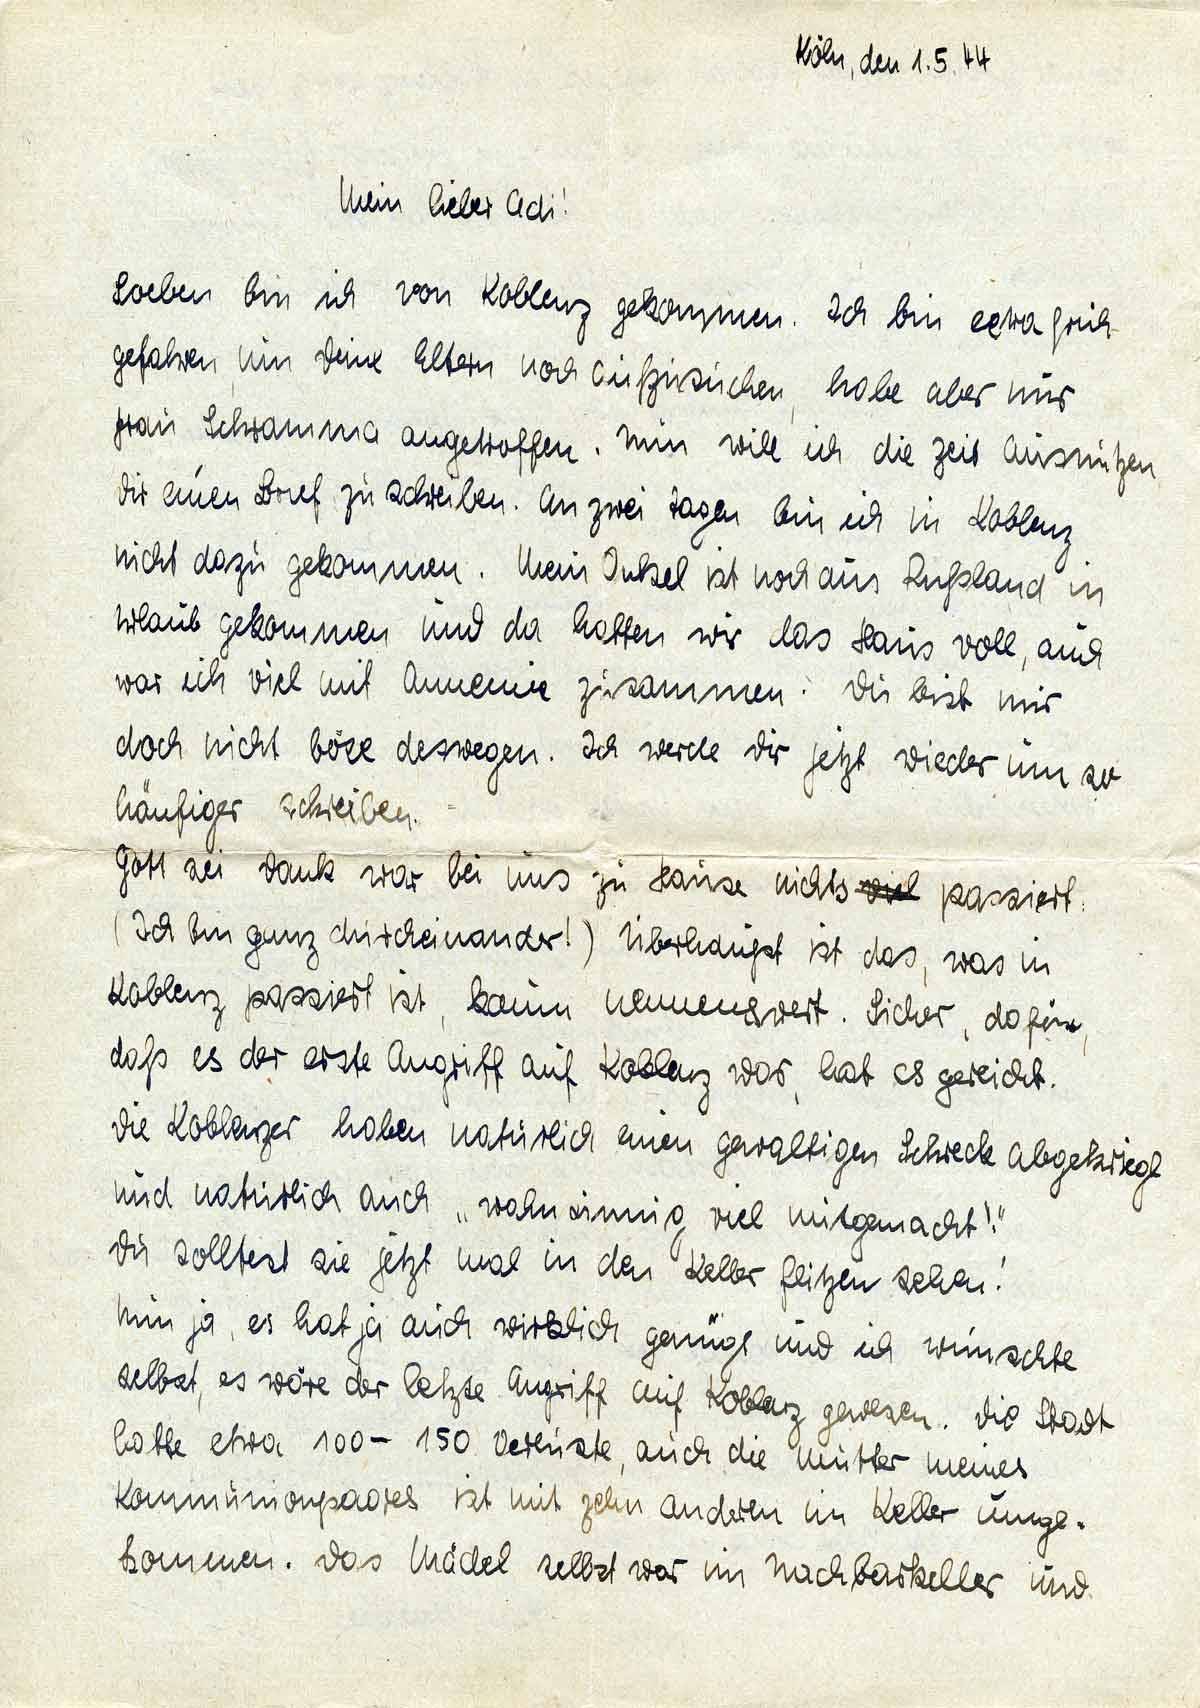 Köln, den 1.5.44
Mein lieber Adi!
Soeben bin ich von Koblenz gekommen. Ich bin extra früh
gefahren, um Deine Eltern noch aufzusuchen, habe aber nur
Frau Schramma angetroffen. Nun will ich die Zeit ausnützen
Dir einen Brief zu schreiben. An zwei Tagen bin ich in Koblenz
nicht dazu gekommen. Mein Onkel ist noch aus Rußland in
Urlaub gekommen und da hatten wir das Haus voll, auch
war ich viel mit Annemie zusammen. Du bist mir
doch nicht böse deswegen. Ich werde Dir jetzt wieder um so
häufiger schreiben.
Gott sei Dank war bei uns zu Hause nichts viel passiert.
(Ich bin ganz durcheinander!) Überhaupt ist das, was in
Koblenz passiert ist, kaum nennenswert. Sicher, dafür,
daß es der erste Angriff auf Koblenz war, hat es gereicht.
Die Koblenzer haben natürlich einen gewaltigen Schreck abgekriegt
und natürlich auch „wahnsinnig viel mitgemacht!"
Du solltest sie jetzt mal in den Keller flitzen sehen!
Nun ja, es hat ja auch wirklich genügt und ich wünschte
selbst, es wäre der letzte Angriff auf Koblenz gewesen. Die Stadt
hatte etwa 100 - 150 Verluste, auch die Mutter meines
Kommunionpaares ist mit zehn anderen im Keller umge-
kommen. Das Mädel selbst war im Nachbarkeller und